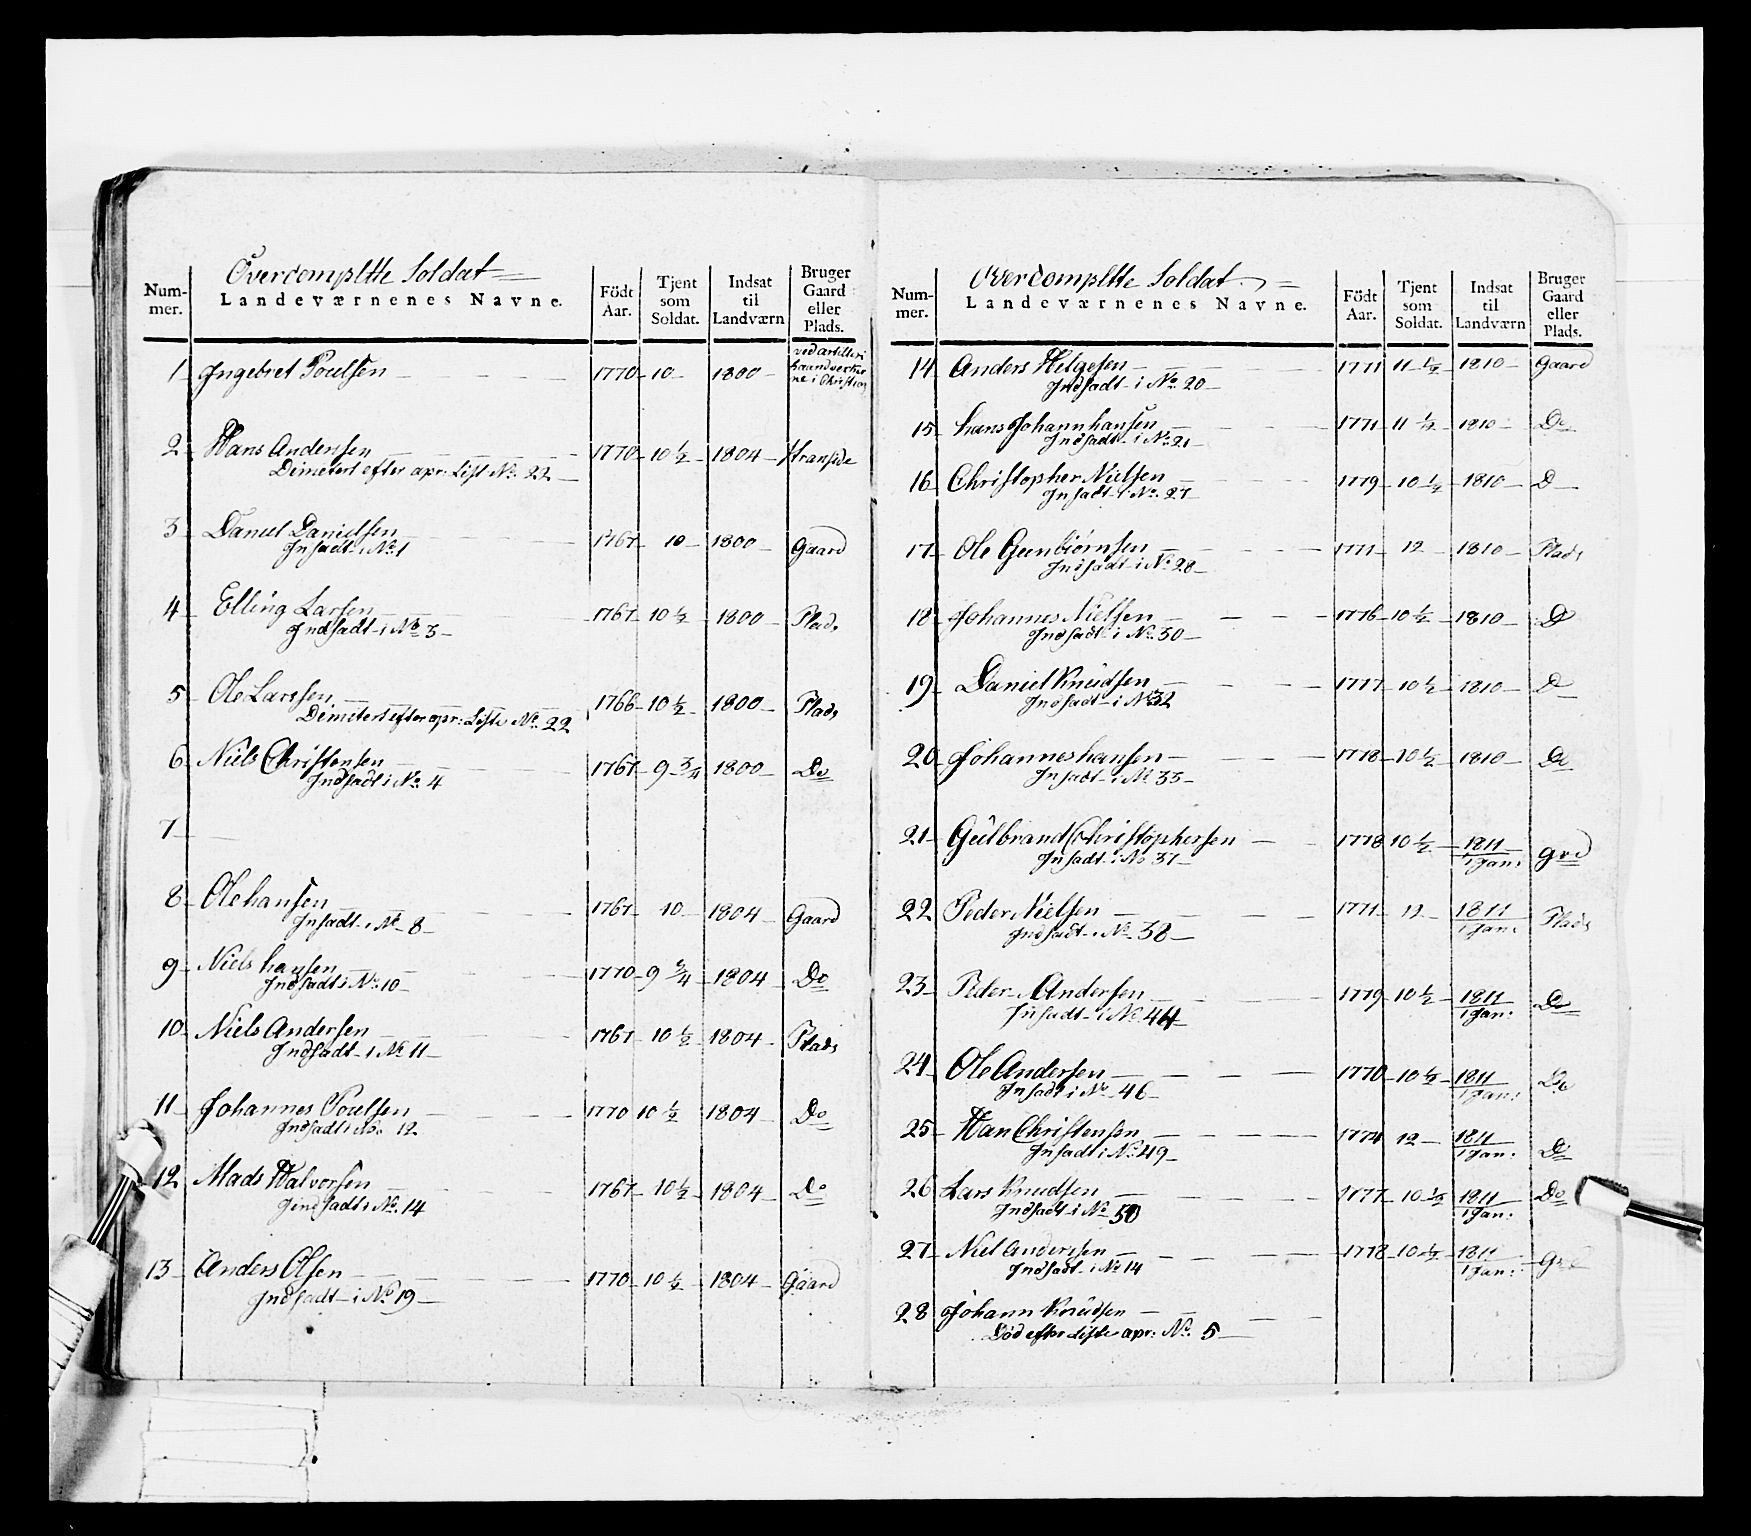 Overcomplette Soldat
Num-mer. Landeværnenes Navne. Födt Aar. Tjent som Soldat. Indsat til Landværn Bruger Gaard eller Plads.
1 Ingebret Poulsen 1770 10 1800 ved artilleri haandverker ne i Christian
2 Hans Andersen 1770 10 1/2 1804
Dimetert efter apr: List No. 22
3 Daniel Danielsen 1767 10 1800 Gaard
Insadt i No 1
4 Elling Larsen 1767 10 1/2 1800 Plads
Indsadt i No 3
5 Ole Larssen 1766 10 1/2 1800 Plads
Dimetert efter apr: Liste No. 22
6 Niels Christensen 1767 9 3/4 1800 Do
Indsadt i No. 4
7
8 Ole hansen 1767 10 1804 Gaard
Insadt i No 8
9 Niels hansen 1770 9 3/4 1804 Do
Indsadt i No: 10
10 Niels Andersen 1767 10 1/2 1804 Plads
Indsadt i No 11
11 Johannes Poulsen 1770 10 1/2 1804 Do
Indsadt i No. 12
12 Mads Halvorsen 1767 10 1/2 1804 Do
Indsadt i No. 14
13 Anders Olsen 1770 10 1/2 1804 Gaard
Indsadt i No 19
Overcomplette Soldat
Num-mer. Landeværnenes Navne. Födt Aar. Tjent som Soldat. Indsat til Landværn Bruger Gaard eller Plads.
14 Anders Helgesen 1771 11 1/2 1810 Gaard
Indsadt i No. 20
15 hans Johann hansen 1771 11 1/2 1810 Do
Indsadt i No. 21
16 Christopher Nielsen 1779 10 1/2 1810 D
Insadt i No. 27
17 Ole Gunbiörnsen 1771 12 1810 Plads
Indsadt i No. 28
18 Johannes Nielsen 1776 10 1/2 1810 D
Indsadt i No. 30
19 Daniel Knudsen 1777 10 1/2 1810 D
Indsadt i No 32
20 Johannes hansen 1778 10 1/2 1810 Do
Insadt i No 33
21 Gulbrand Christophersen 1778 10 1/2 1811 1 Jan: Grd
Insadt i No 37
22 Peder Nielsen 1771 12 1811 1 Jan: Plads
Indsadt i No 38
23 Peder Andersen 1779 10 1/2 1811 1 Jan: Do
Insadt i No. 44
24 Ole Andersen 1770 10 1/2 1811 1 Jan: Do
Insadt i No 46
25 Han Christensen 1774 12 1811 1 Jan: Do
Insadt i No. 49
26 Lars Knudsen 1777 10 1/2 1811 1 Jan: Do
Indsadt i No 50
27 Niel Anderssen 1778 10 1/2 1811 1 Jan: Grd
Indsadt i No 14
28 Johann Knudsen
Död efter Liste apr: No. 5